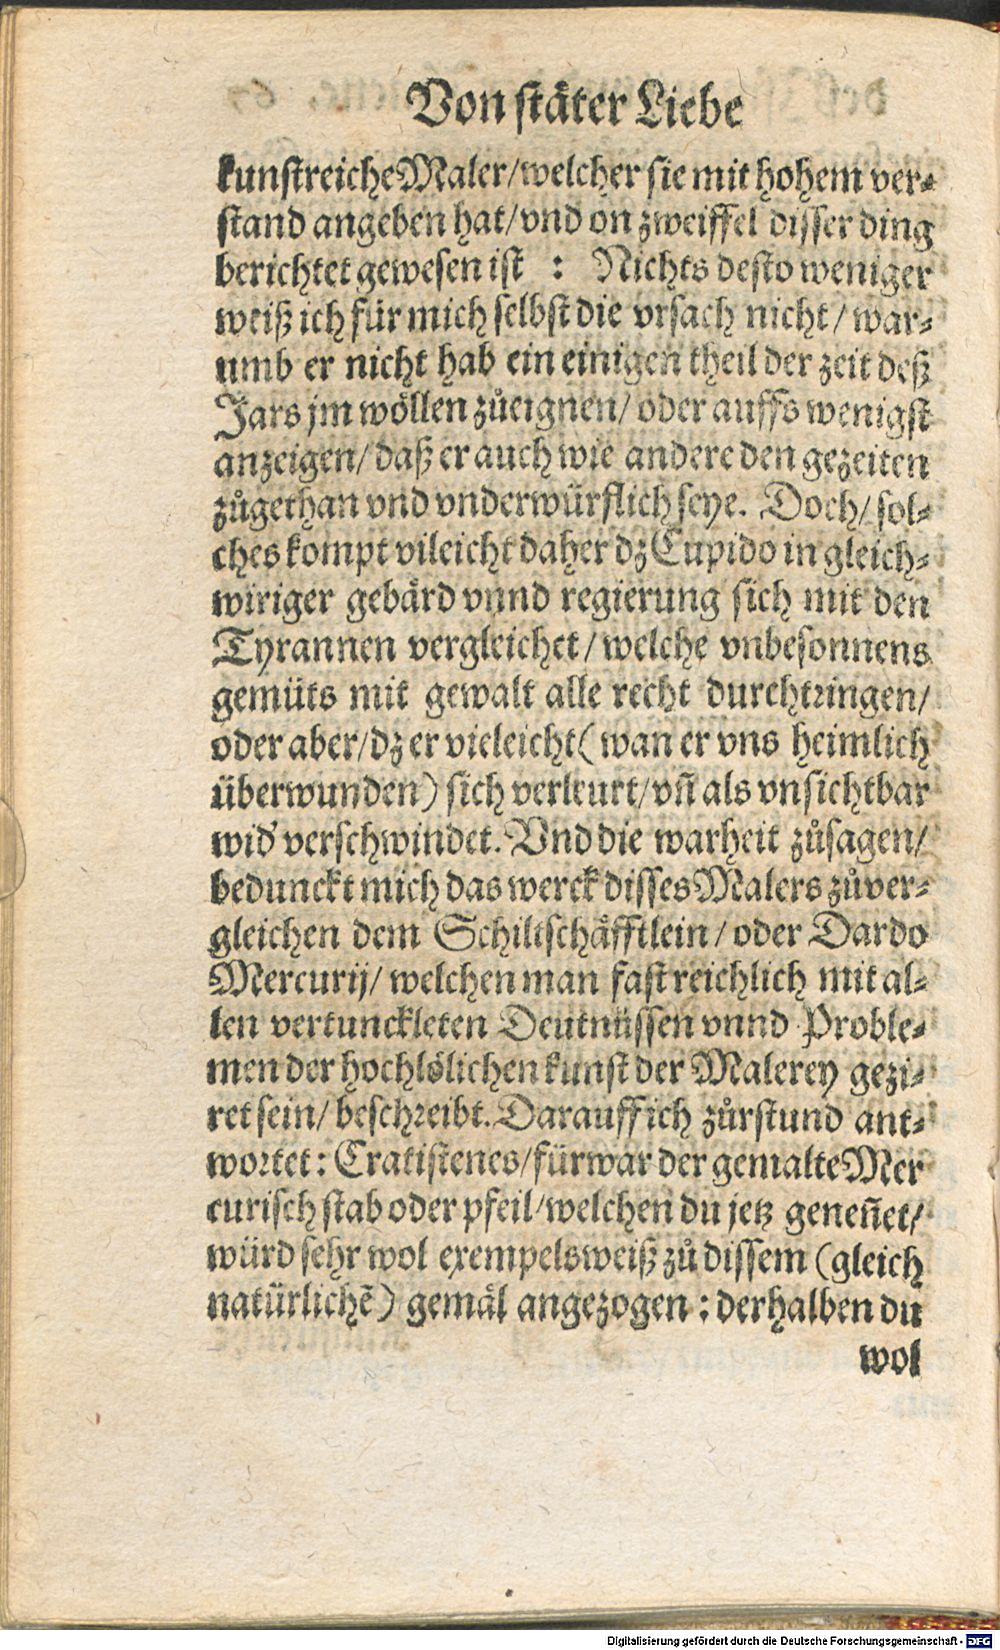 Von stäter Liebe
kunstreiche Maler/welcher sie mit hohem ver-
stand angeben hat/vnd on zweiffel disser ding
berichtet gewesen ist : Nichts desto weniger
weiß ich für mich selbst die vrsach nicht/war-
umb er nicht hab ein einigen theil der zeit deß
Jars jm wöllen zůeignen/oder auffs wenigst
anzeigen/daß er auch wie andere den gezeiten
zůgethan vnd vnderwürflich seye. Doch/sol-
ches kompt vileicht daher dz Cupido in gleich-
wiriger gebärd vnnd regierung sich mit den
Tyrannen vergleichet/welche vnbesonnens
gemüts mit gewalt alle recht durchtringen/
oder aber/dz er vieleicht (wan er vns heimlich
überwunden) sich verleurt/vñ als vnsichtbar
wid' verschwindet. Vnd die warheit zůsagen/
bedunckt mich das werck disses Malers zůver-
gleichen dem Schiltschäfftlein/oder Dardo
Mercurij/welchen man fast reichlich mit al-
len vertunckleten Deutnüssen vnnd Proble-
men der hochlölichen kunst der Malerey gezi-
ret sein/beschreibt. Darauff ich zůrstund ant-
wortet: Cratistenes/fürwar der gemalte Mer
curisch stab oder pfeil/welchen du jetz geneñet/
würd sehr wol exempelsweiß zů dissem (gleich
natürlichē) gemäl angezogen: derhalben du
wol
Digitalisierung gefördert durch die Deutsche Forschungsgemeinschaft - DFG